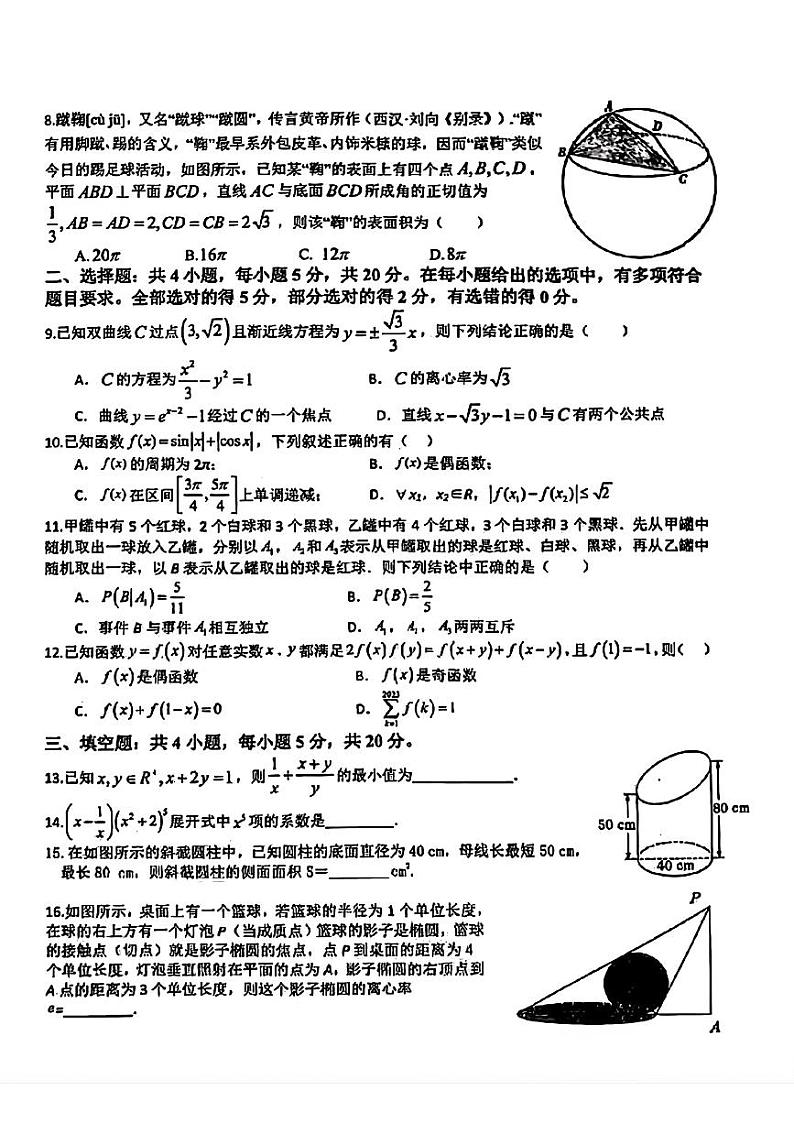 8.蹴鞠[cù jū]，又名“蹴球”“蹴圆”，传言黄帝所作（西汉·刘向《别录》）.“蹴”
有用脚蹴、踢的含义，“鞠”最早系外包皮革、内饰米糠的球，因而“蹴鞠”类似
今日的踢足球活动，如图所示，已知某“鞠”的表面上有四个点 A,B,C,D，
平面 ABD⊥平面 BCD，直线 AC 与底面 BCD 所成角的正切值为
1/3, AB=AD=2, CD=CB=2√3，则该“鞠”的表面积为（ ）
A.20π B.16π C. 12π D.8π
A
D
B
C
二、选择题：共 4 小题，每小题 5 分，共 20 分。在每小题给出的选项中，有多项符合
题目要求。全部选对的得 5 分，部分选对的得 2 分，有选错的得 0 分。
9.已知双曲线 C 过点(3,√2)且渐近线方程为 y=±(√3/3)x，则下列结论正确的是（ ）
A. C 的方程为 x²/3−y²=1 B. C 的离心率为√3
C. 曲线 y=eˣ⁻²−1 经过 C 的一个焦点 D. 直线 x−√3y−1=0 与 C 有两个公共点
10.已知函数 f(x)=sin|x|+|cosx|，下列叙述正确的有（ ）
A. f(x) 的周期为 2π； B. f(x)是偶函数；
C. f(x) 在区间[3π/4, 5π/4]上单调递减； D. ∀x₁，x₂∈R，|f(x₁)−f(x₂)|≤√2
11.甲罐中有 5 个红球，2 个白球和 3 个黑球，乙罐中有 4 个红球，3 个白球和 3 个黑球．先从甲罐中
随机取出一球放入乙罐，分别以 A₁，A₂和 A₃表示从甲罐取出的球是红球、白球、黑球，再从乙罐中
随机取出一球，以 B 表示从乙罐取出的球是红球．则下列结论中正确的是（ ）
A. P(B|A₁)=5/11 B. P(B)=2/5
C. 事件 B 与事件 A₁相互独立 D. A₁，A₂，A₃两两互斥
12.已知函数 y=f(x)对任意实数 x．y 都满足 2f(x)f(y)=f(x+y)+f(x−y)，且 f(1)=−1，则（ ）
A. f(x)是偶函数 B. f(x)是奇函数
C. f(x)+f(1−x)=0 D. ∑_{k=1}^{2023} f(k)=1
三、填空题：共 4 小题，每小题 5 分，共 20 分。
13.已知 x,y∈R⁺,x+2y=1，则 1/x+(x+y)/y 的最小值为__________．
14.(x−1/x)(x²+2)⁵展开式中 x⁵ 项的系数是________．
15. 在如图所示的斜截圆柱中，已知圆柱的底面直径为 40 cm，母线长最短 50 cm，
最长 80 cm，则斜截圆柱的侧面面积 S=_______cm²．
50 cm
80 cm
40 cm
16.如图所示，桌面上有一个篮球，若篮球的半径为 1 个单位长度，
在球的右上方有一个灯泡 P（当成质点）篮球的影子是椭圆，篮球
的接触点（切点）就是影子椭圆的焦点，点 P 到桌面的距离为 4
个单位长度，灯泡垂直照射在平面的点为 A，影子椭圆的右顶点到
A 点的距离为 3 个单位长度，则这个影子椭圆的离心率
e=________．
P
A